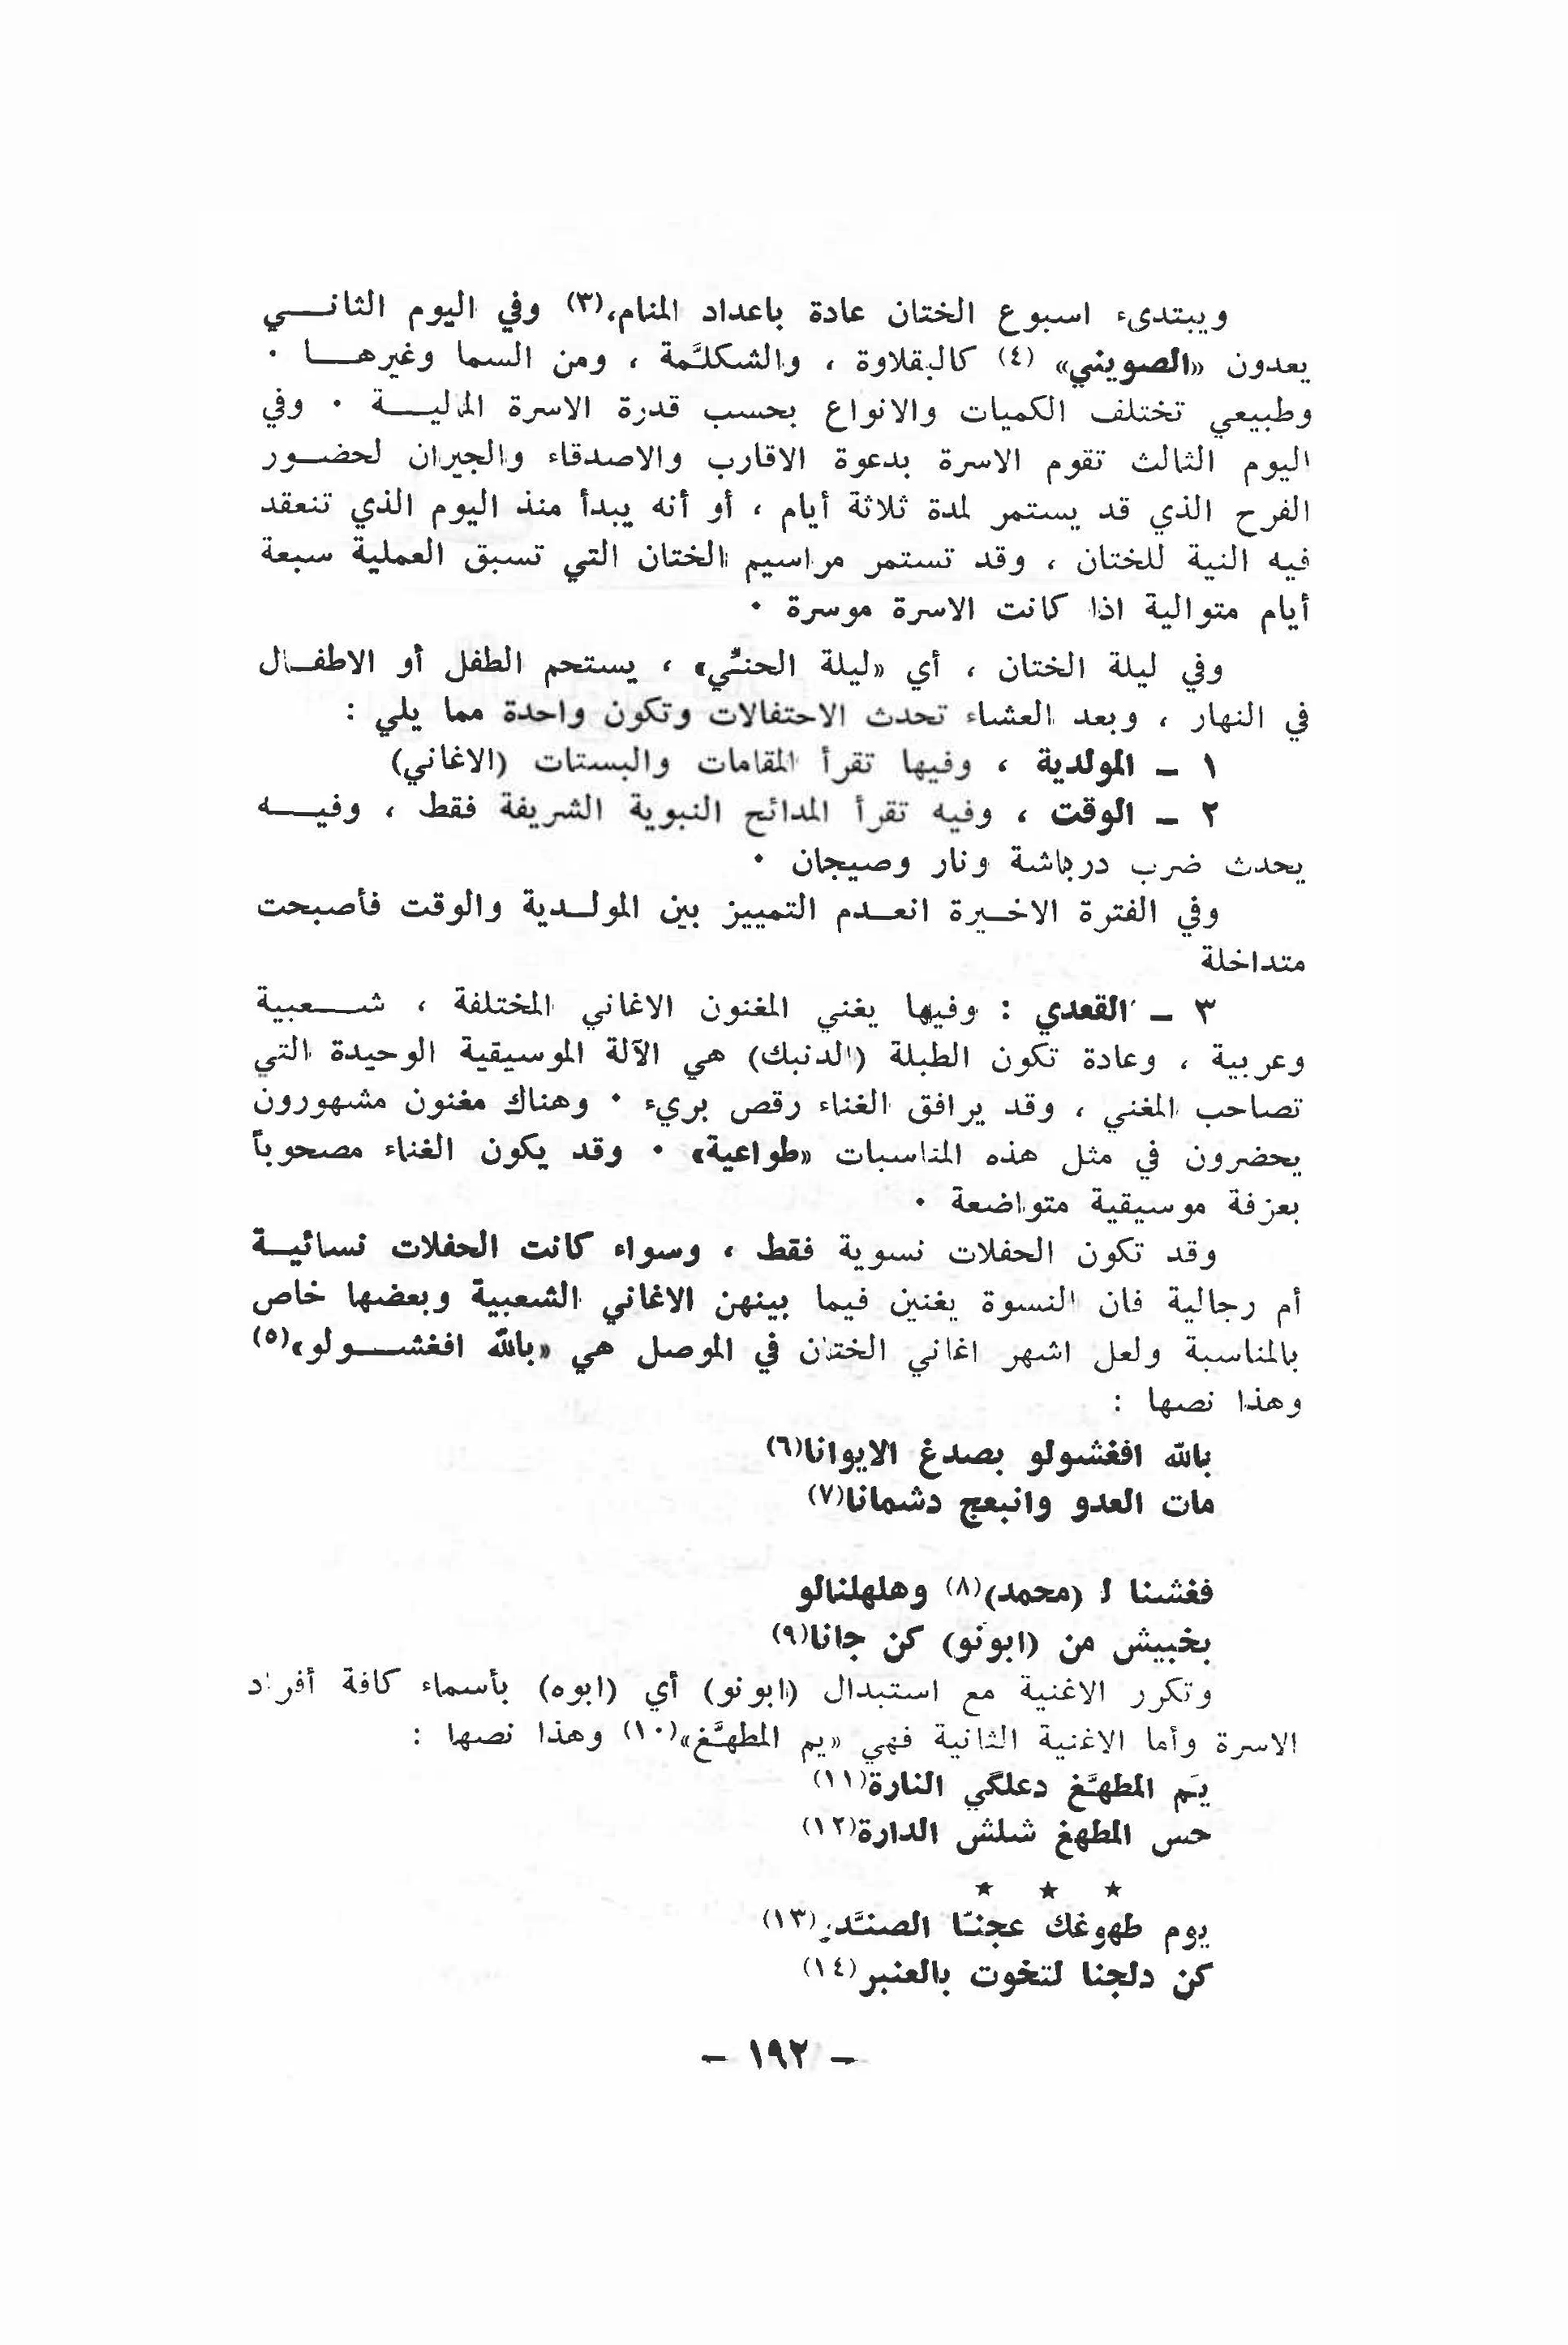 ويبتدىء اسبوع الختان عادة باعداد المنام،(٣) وفي اليوم الثانـــي
يعدون «الصويني» (٤) كالبقلاوة ، والشكلَّمة ، ومن السما وغيرهـــا ٠
وطبيعي تختلف الكميات والانواع بحسب قدرة الاسرة الماليـــة ٠ وفي
اليوم الثالث تقوم الاسرة بدعوة الاقارب والاصدقاء والجيران لحضـور
الفرح الذي قد يستمر لمدة ثلاثة أيام ، أو أنه يبدأ منذ اليوم الذي تنعقد
فيه النية للختان ، وقد تستمر مراسيم الختان التي تسبق العملية سبعة
أيام متوالية اذا كانت الاسرة موسرة ٠
وفي ليلة الختان ، أي «ليلة الحنّي» ، يستحم الطفل أو الاطفـال
في النهار ، وبعد العشاء تحدث الاحتفالات وتكون واحدة مما يلي :
١ ــ المولدية ، وفيها تقرأ المقامات والبستات (الاغاني)
٢ ــ الوقت ، وفيه تقرأ المدائح النبوية الشريفة فقط ، وفيـــه
يحدث ضرب درباشة ونار وصيجان ٠
وفي الفترة الاخـيرة انعـدم التمييز بين المولـدية والوقت فأصبحت
متداخلة
٣ ــ القعدي : وفيها يغني المغنون الاغاني المختلفة ، شـــعبية
وعربية ، وعادة تكون الطبلة (الدنبك) هي الآلة الموسيقية الوحيدة التي
تصاحب المغني ، وقد يرافق الغناء رقص بريء ٠ وهناك مغنون مشهورون
يحضرون في مثل هذه المناسبات «طواعية» ٠ وقد يكون الغناء مصحوباً
بعزفة موسيقية متواضعة ٠
وقد تكون الحفلات نسوية فقط ، وسواء كانت الحفلات نسائيـة
أم رجالية فان النسوة يغنين فيما بينهن الاغاني الشعبية وبعضها خاص
بالمناسبة ولعل اشهر اغاني الختان في الموصل هي «بالله افغشـــولو»(٥)
وهذا نصها :
بالله افغشولو بصدغ الايوانا(٦)
مات العدو وانبعج دشمانا(٧)
ففشنا لـ (محمد)(٨) وهلهلنالو
بخبيش من (ابونو) كن جانا(٩)
وتكرر الاغنية مع استبدال (ابونو) أي (ابوه) بأسماء كافة أفراد
الاسرة وأما الاغنية الثانية فهي «يم المطهَّغ»(١٠) وهذا نصها :
يَم المطهَّغ دعلگي النارة(١١)
حس المطهغ شلش الدارة(١٢)
★ ★ ★
يوم طهوغك عجنّا الصنَّدر(١٣)
كن دلجنا لتخوت بالعنبر(١٤)
ــ ١٩٢ ــ